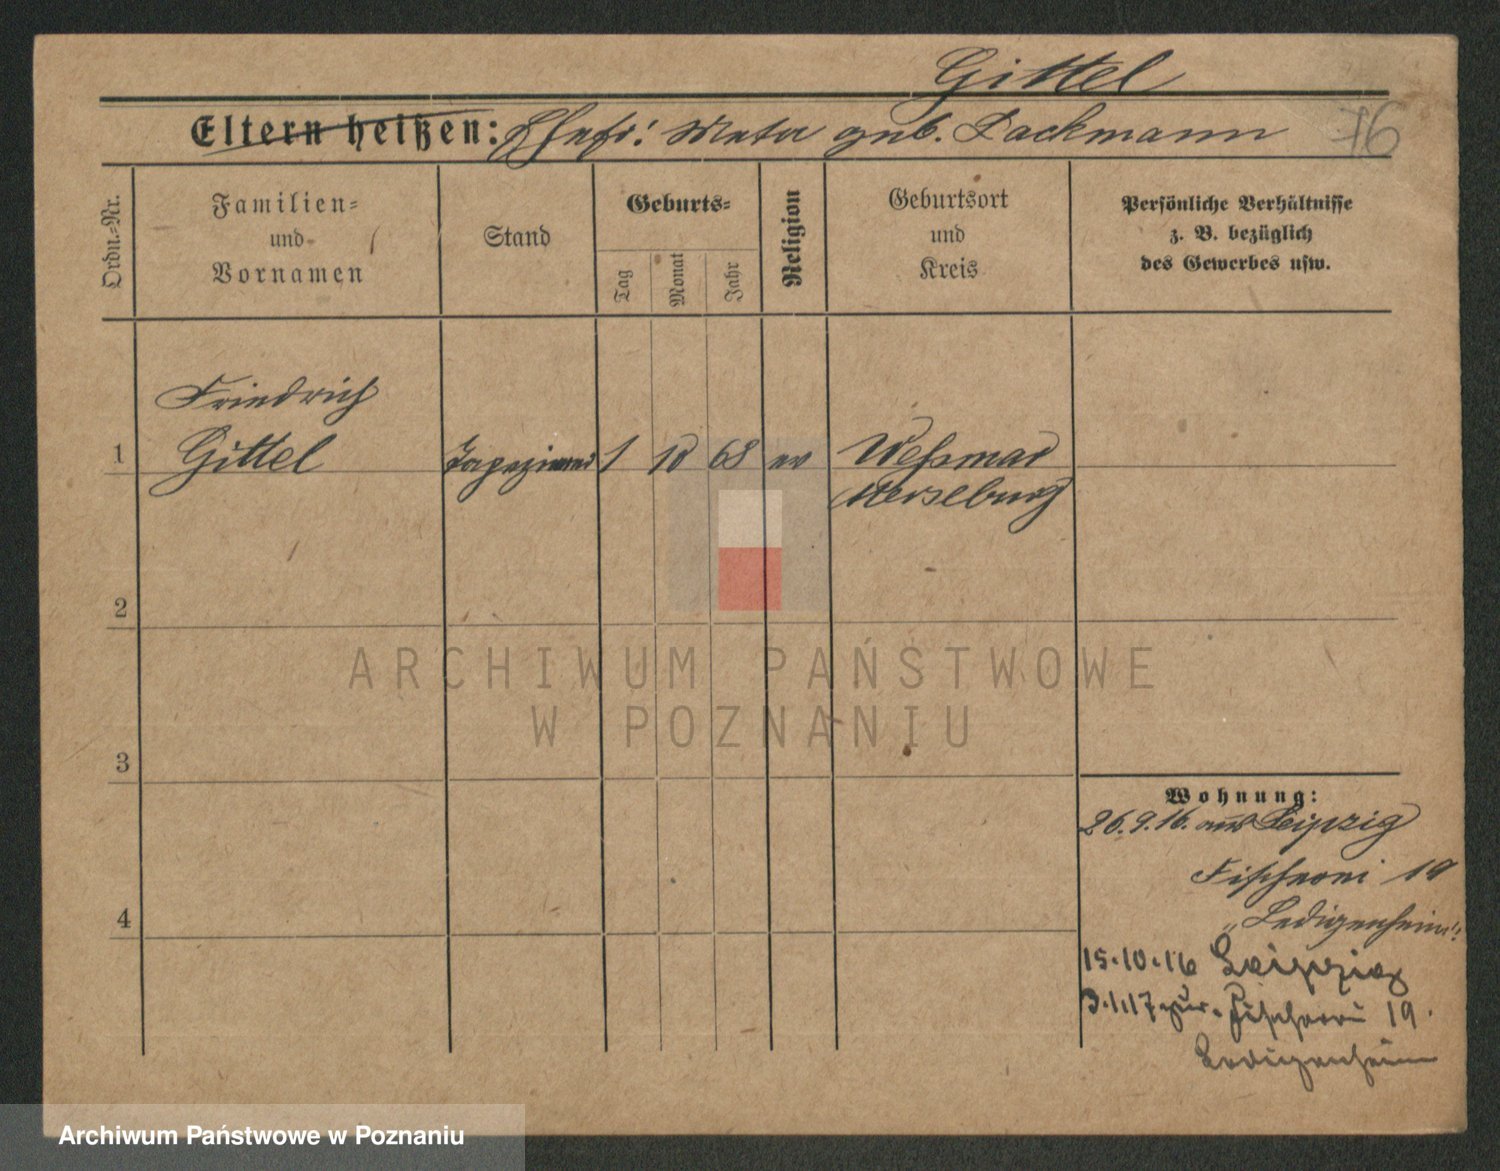 Gittel
Eltern heißen: Ehefr: Meta geb. Packmann
76
Ordn.-Nr.
Familien-
und
Vornamen
Stand
Geburts-
Tag
Monat
Jahr
Religion
Geburtsort
und
Kreis
Persönliche Verhältnisse
z. B. bezüglich
des Gewerbes usw.
Friedrich
1 Gittel Tapezierer 1 10 68 ev Weßmar
Merseburg
2
ARCHIWUM PAŃSTWOWE
W POZNANIU
3
Wohnung:
26.9.16. aus Leipzig
Fischerei 19
"Ledigenheim"
4
15.10.16 Leipzig
3.1.17 zur. Fischerei 19.
Ledigenheim
Archiwum Państwowe w Poznaniu